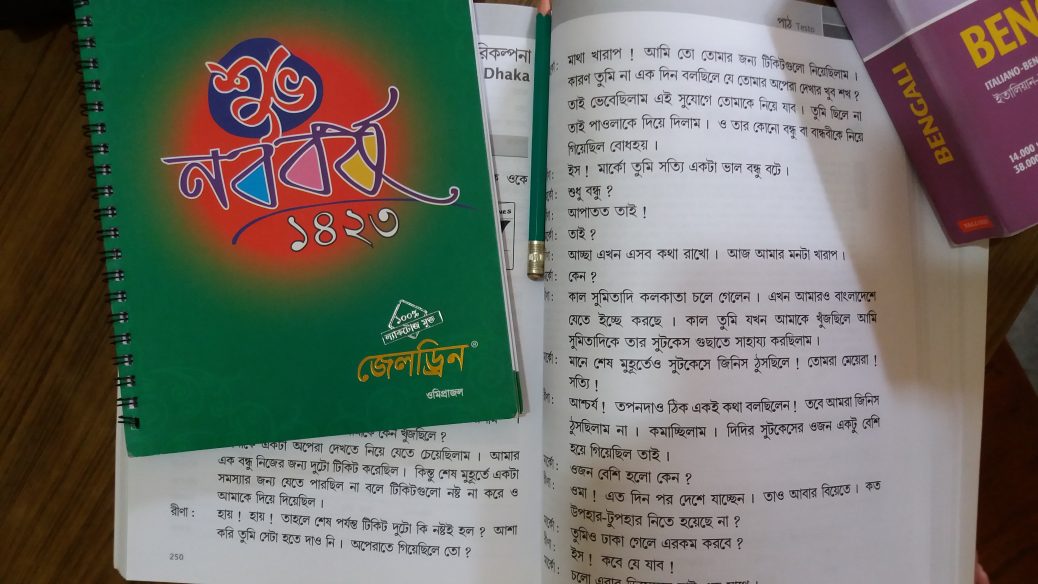 শুভ
নববর্ষ
১৪২৩
১০০%
ল্যাকটোজ মুক্ত
জেলড্রিন®
ওমিপ্রাজল
রিকল্পনা
Dhaka
ওকে
খুঁজছিলে ?
একটা অপেরা দেখতে নিয়ে যেতে চেয়েছিলাম । আমার
এক বন্ধু নিজের জন্য দুটো টিকিট করেছিল । কিন্তু শেষ মুহূর্তে একটা
সমস্যার জন্য যেতে পারছিল না বলে টিকিটগুলো নষ্ট না করে ও
আমাকে দিয়ে দিয়েছিল ।
রীণা : হায় ! হায় ! তাহলে শেষ পর্যন্ত টিকিট দুটো কি নষ্টই হল ? আশা
করি তুমি সেটা হতে দাও নি । অপেরাতে গিয়েছিলে তো ?
250
পাঠ Testo
মাথা খারাপ ! আমি তো তোমার জন্য টিকিটগুলো নিয়েছিলাম ।
কারণ তুমি না এক দিন বলছিলে যে তোমার অপেরা দেখার খুব শখ ?
তাই ভেবেছিলাম এই সুযোগে তোমাকে নিয়ে যাব । তুমি ছিলে না
তাই পাওলাকে দিয়ে দিলাম । ও তার কোনো বন্ধু বা বান্ধবীকে নিয়ে
গিয়েছিল বোধহয় ।
ইস ! মার্কো তুমি সত্যি একটা ভাল বন্ধু বটে ।
শুধু বন্ধু ?
আপাতত তাই !
তাই ?
আচ্ছা এখন এসব কথা রাখো । আজ আমার মনটা খারাপ ।
কেন ?
কাল সুমিতাদি কলকাতা চলে গেলেন । এখন আমারও বাংলাদেশে
যেতে ইচ্ছে করছে । কাল তুমি যখন আমাকে খুঁজছিলে আমি
সুমিতাদিকে তার সুটকেস গুছাতে সাহায্য করছিলাম ।
মানে শেষ মুহূর্তেও সুটকেসে জিনিস ঠুসছিলে ! তোমরা মেয়েরা !
সত্যি !
আশ্চর্য ! তপনদাও ঠিক একই কথা বলছিলেন ! তবে আমরা জিনিস
ঠুসছিলাম না । কমাচ্ছিলাম । দিদির সুটকেসের ওজন একটু বেশি
হয়ে গিয়েছিল তাই ।
ওজন বেশি হলো কেন ?
ওমা ! এত দিন পর দেশে যাচ্ছেন । তাও আবার বিয়েতে । কত
উপহার-টুপহার নিতে হয়েছে না ?
তুমিও ঢাকা গেলে এরকম করবে ?
ইস ! কবে যে যাব !
চলো এবার
BENGALI
BEN
ITALIANO-BEN
ইতালিয়ান-
14.000
38.000